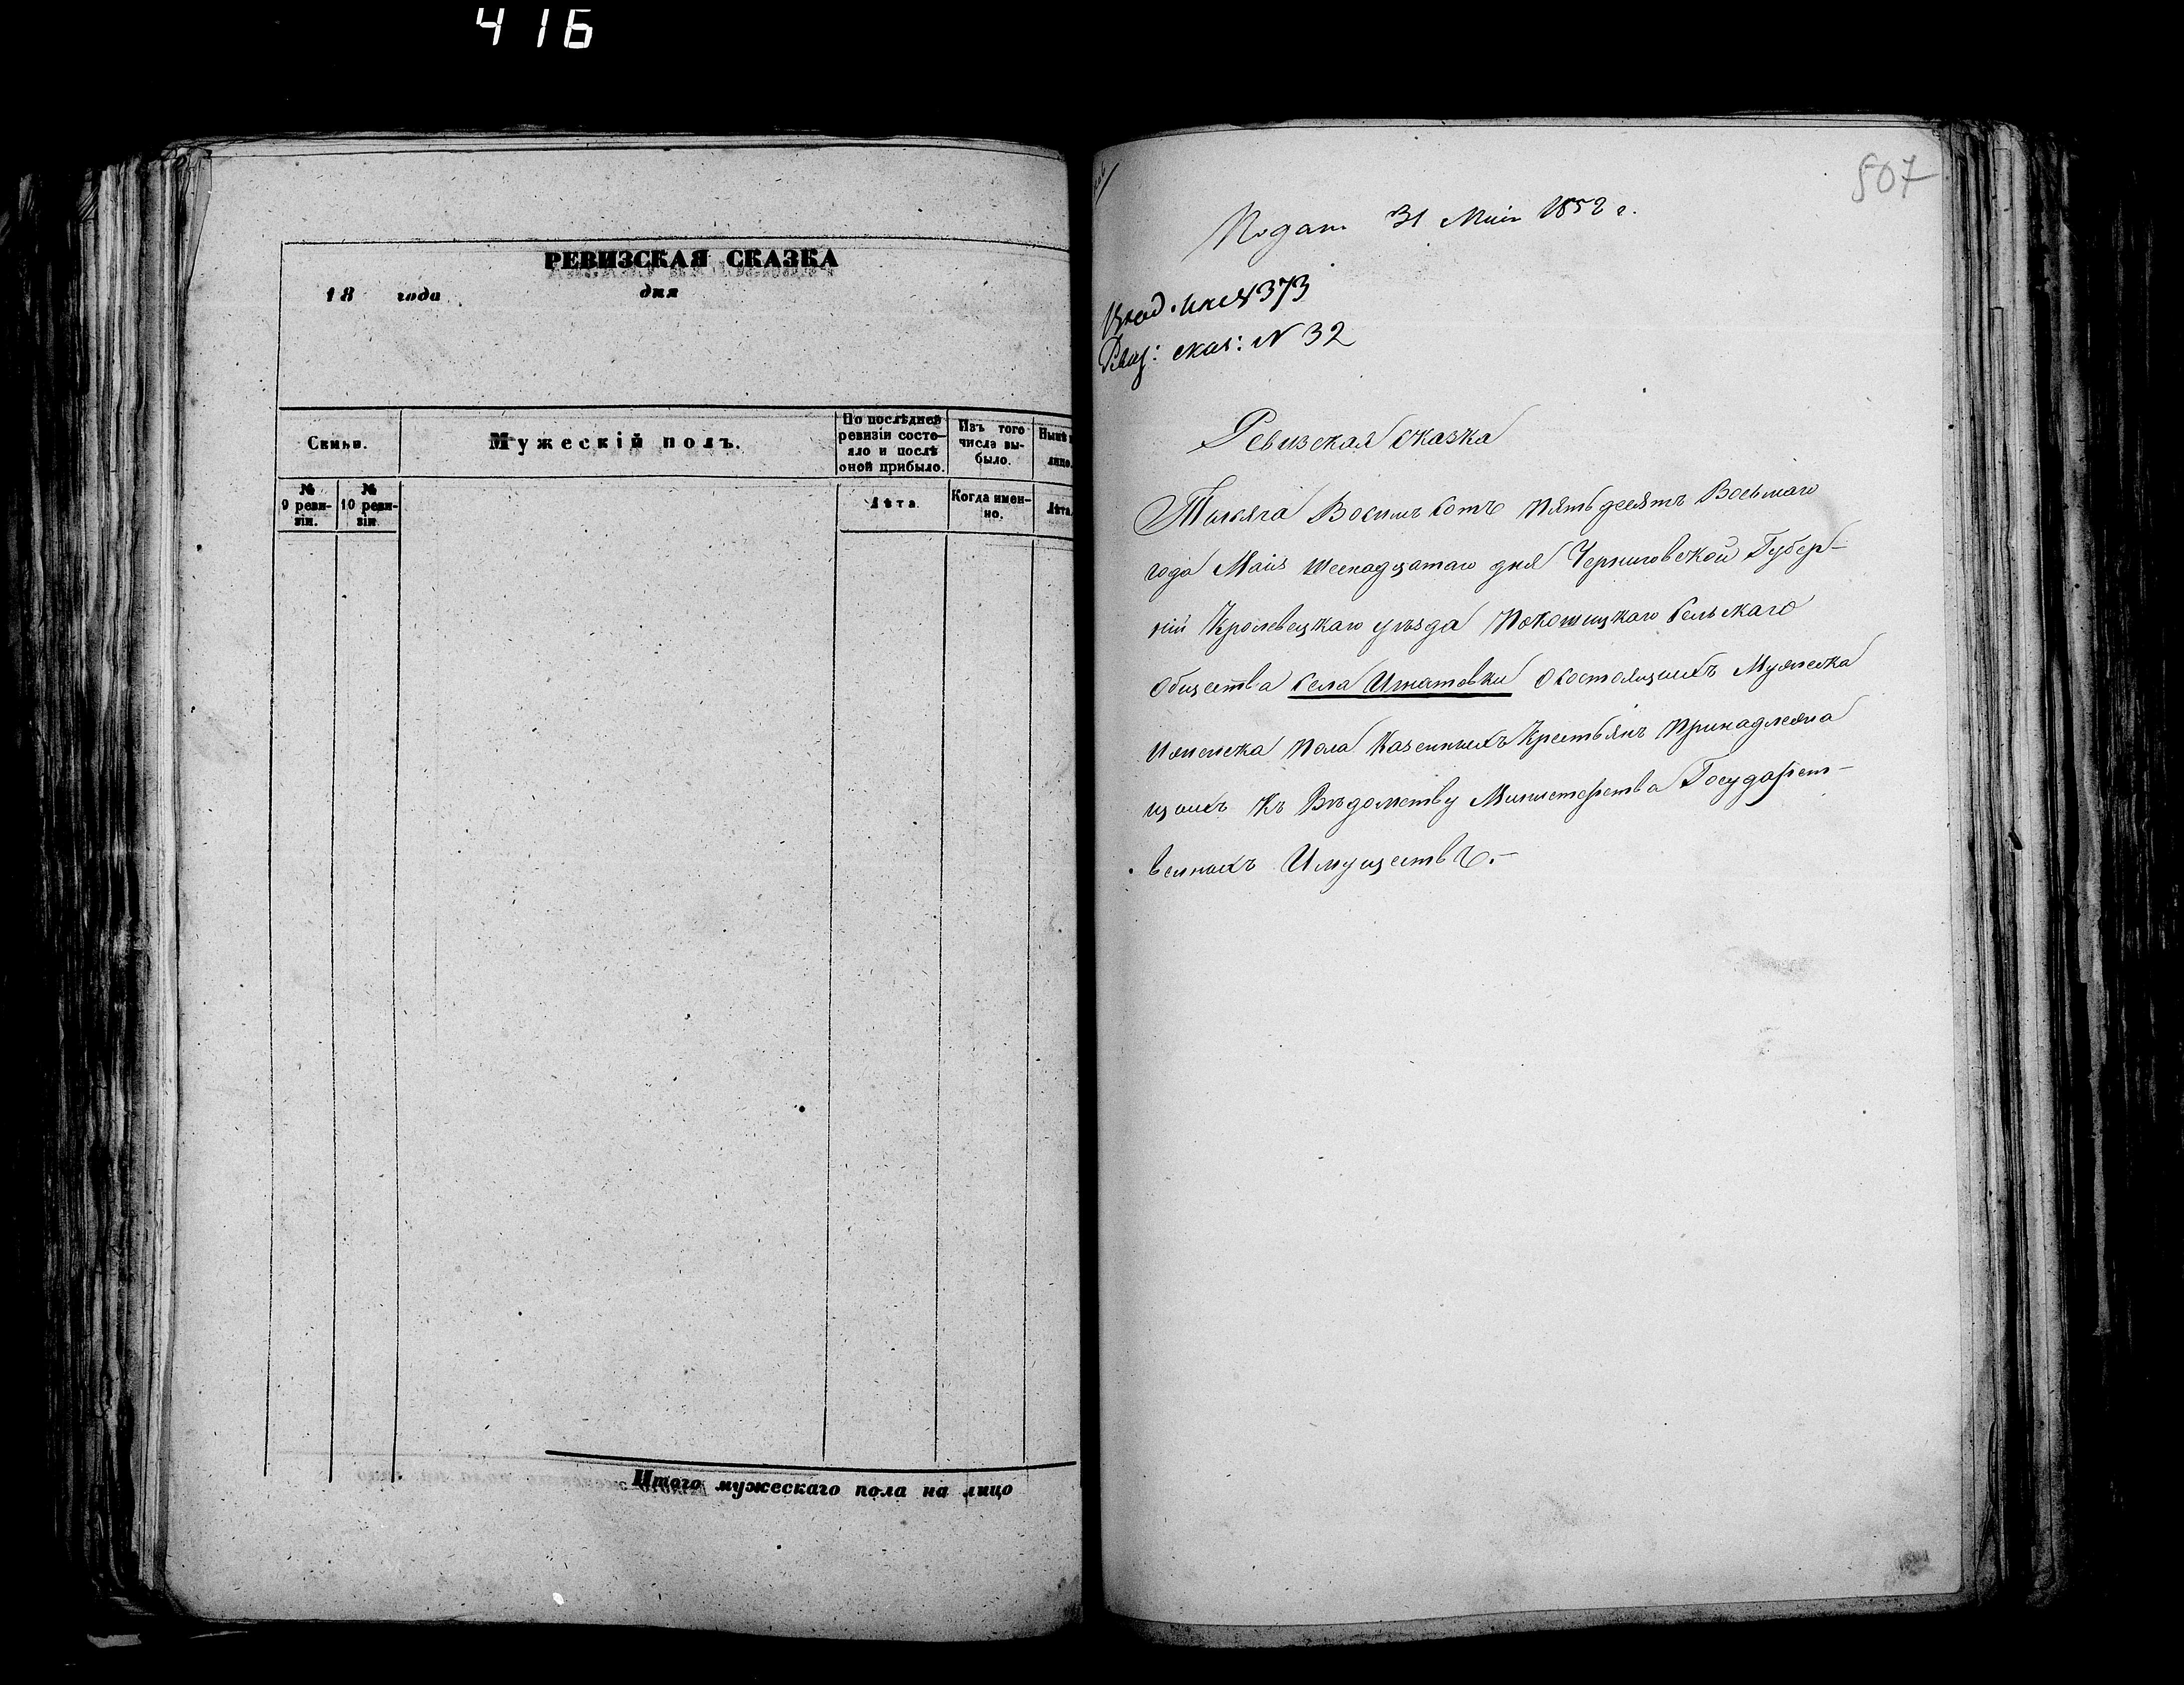 416
РЕВИЗСКАЯ СКАЗКА
18 года дня
Семьи.
Мужескій полъ.
По послѣдней ревизіи состояло и послѣ оной прибыло.
Изъ того числа выбыло.
Нынѣ
лицо.
№ 9 ревизіи.
№ 10 ревизіи
Лѣта.
Когда именно.
Лѣта
Итого мужескаго пола на лицо
507
Подан. 31 Маія 1858 г.
373
Ревиз: сказ: № 32
Ревизская сказка
Тысяча Восемь сотъ пятьдесятъ Восьмаго
года Маія Шеснадцатаго дня Черниговской Губер-
ніи Кролевецкаго уѣзда Покошицкаго Сельскаго
Общества села Игнатовки О состоящихъ Мужеска
и женска пола Казенныхъ Крестьянъ Принадлежа
щихъ къ Вѣдомству Министерства Государст-
венныхъ Имуществъ.-